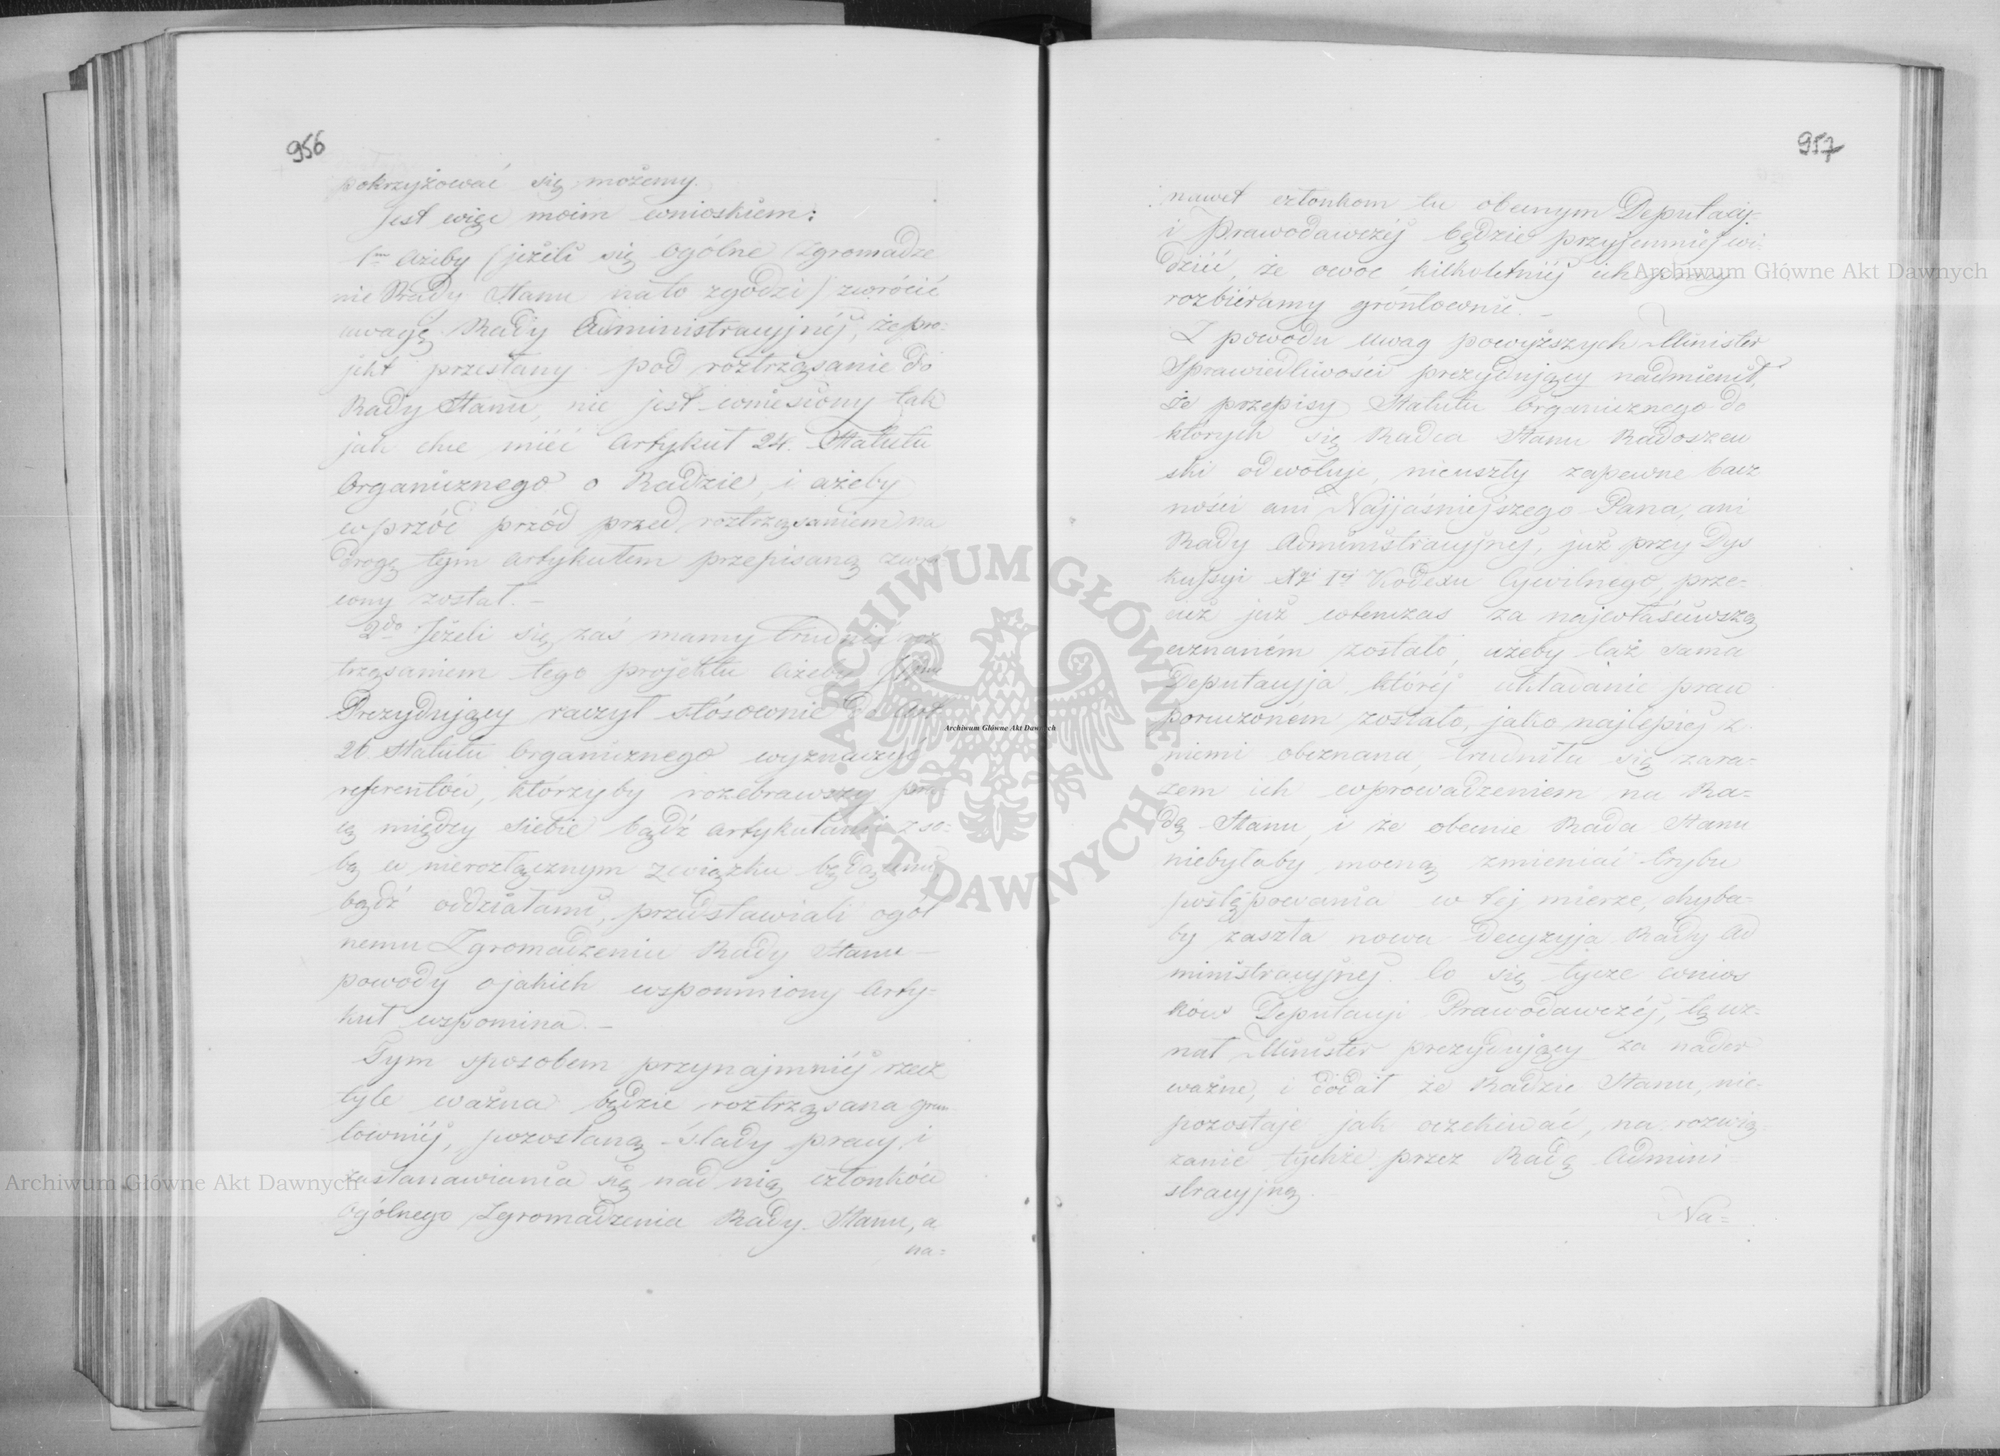 956
pokrzyżować się możemy.
Jest więc moim wnioskiem:
1mo Ażeby (jeżeli się ogólne Zgromadze
nie Rady Stanu na to zgodzi) zwrócić
uwagę Rady Administracyjnéj, że pro-
jekt przesłany pod roztrząsanie do
Rady Stanu, nie jest wniesiony tak
jak chce mieć Artykuł 24. Statutu
Organicznego o Radzie, i ażeby
wprzód przód przed roztrząsaniem na
drogę tym artykułem przepisaną zwró-
cony został. —
2do Jeżeli się zaś mamy trudnić roz
trząsaniem tego projektu ażeby
Prezydujący raczył stósownie do Art
26 Statutu Organicznego wyznaczyć
referentów, którzyby rozebrawszy pra-
cą między siebie bądź artykułami z so-
bą w nierozłącznym związku będącemi
bądź oddziałami, przedstawiali ogól
nemu Zgromadzeniu Rady Stanu —
powody o jakich wspomniony Arty-
kuł wspomina. —
Tym sposobem przynajmniéj rzecz
tyle ważna będzie roztrząsana grun-
towniéj, pozostaną ślady pracy i
zastanawiania się nad nią członków
ogólnego Zgromadzenia Rady Stanu, a
na=
957
nawet członkom tu obecnym Deputacyj-
i Prawodawczéj będzie przyjemniej wi-
dzieć, że owoc kilkoletniéj ich pracy
rozbiéramy gróntownie. —
Z powodu uwag powyższych Minister
Sprawiedliwości prezydujący nadmienił,
że przepisy Statutu Organicznego do
których się Radca Stanu Radoszew
ski odwołuje, nieuszły zapewne bacz
ności ani Najjaśniejszego Pana, ani
Rady Administracyjnej, już przy Dys
kussyi Xgi Iéj Kodexu Cywilnego, prze-
cież już wtenczas za najwłaściwszą
uznaném zostało, ażeby taż sama
Deputacyja, któréj układanie praw
poruczoném zostało, jako najlepiej z
niemi obeznana, trudniła się zara-
zem ich wprowadzeniem na Ra=
dę Stanu, i że obecnie Rada Stanu
niebyłaby mocną zmieniać trybu
postępowania w tej mierze, chyba-
by zaszła nowa Decyzyja Rady Ad
ministracyjnej. Co się tycze wnios
ków Deputacyi Prawodawczéj, te uz-
nał Minister prezydujący za nader
ważne, i dodał że Radzie Stanu, nie-
pozostaje jak oczekiwać, na rozwią-
zanie tychże przez Radę Admini
stracyjną.
Na=
Archiwum Główne Akt Dawnych
Archiwum Główne Akt Dawnych
Archiwum Główne Akt Dawnych
ARCHIWUM GŁÓWNE · AKT DAWNYCH ·